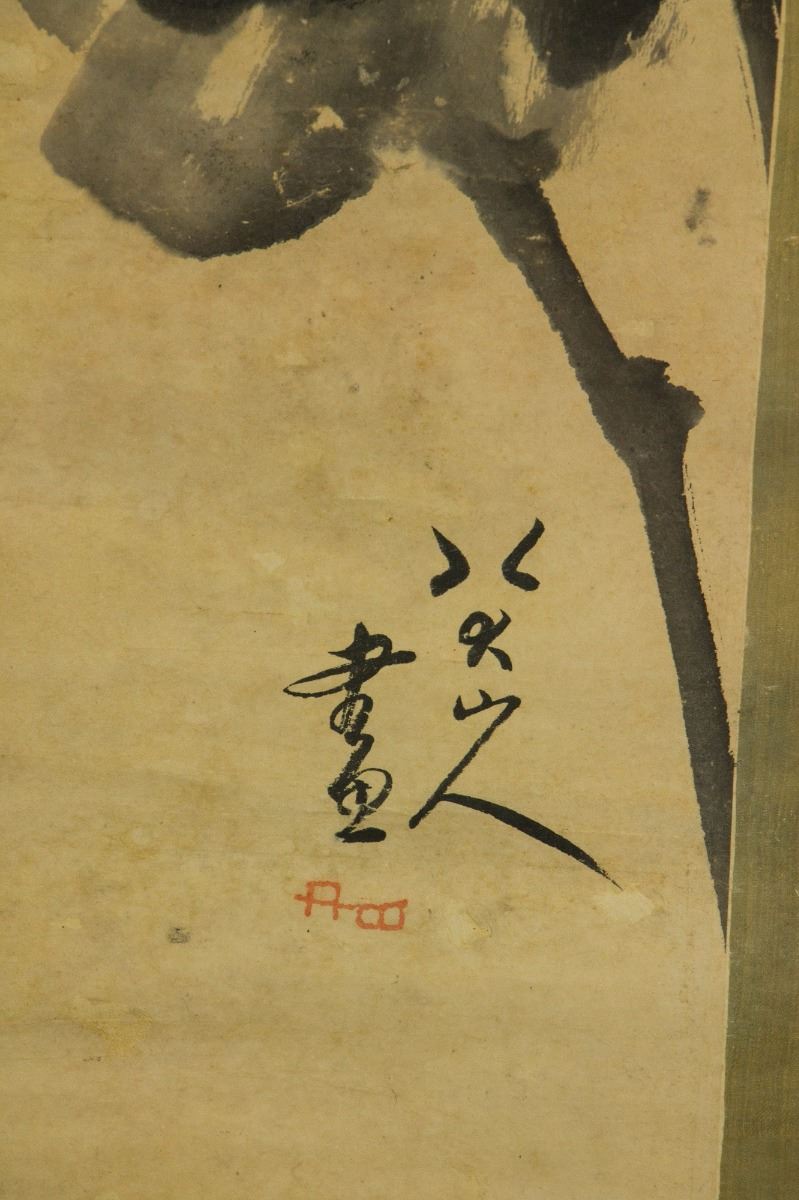 八大山人
畫